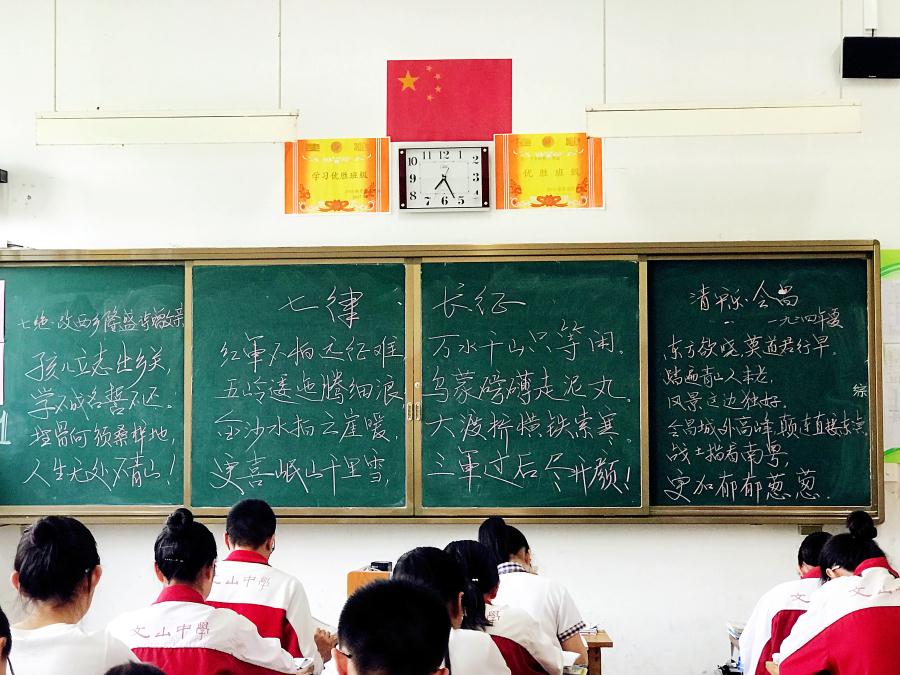 学习优胜班级
优胜班级
11 12 1
10 2
9 3
8 4
7 6 5
七绝·改西乡隆盛诗赠父亲
孩儿立志出乡关,
学不成名誓不还。
埋骨何须桑梓地,
人生无处不青山!
七律 长征
红军不怕远征难 万水千山只等闲。
五岭逶迤腾细浪, 乌蒙磅礴走泥丸.
金沙水拍云崖暖, 大渡桥横铁索寒.
更喜岷山千里雪, 三军过后尽开颜!
清平乐·会昌
一九三四年夏
东方欲晓,莫道君行早.
踏遍青山人未老,
风景这边独好.
会昌城外高峰,颠连直接东溟.
战士指看南粤,
更加郁郁葱葱.
综
1
文山中學
文山中學